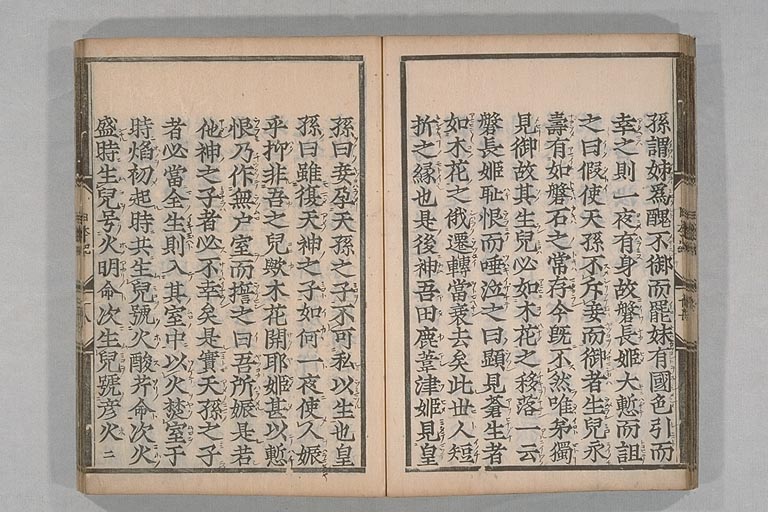 孫謂姊爲醜不御而罷妹有國色引而
幸之則一夜有身故磐長姬大慙而詛
之曰假使天孫不斥妾而御者生兒永
壽有如磐石之常存今旣不然唯弟獨
見御故其生兒必如木花之移落一云
磐長姬恥恨而唾泣之曰顯見蒼生者
如木花之俄遷轉當衰去矣此世人短
折之緣也是後神吾田鹿葦津姬見皇
孫曰妾孕天孫之子不可私以生也皇
孫曰雖復天神之子如何一夜使人娠
乎抑非吾之兒歟木花開耶姬甚以慙
恨乃作無戶室而誓之曰吾所娠是若
他神之子者必不幸矣是實天孫之子
者必當全生則入其室中以火焚室于
時焰初起時共生兒號火酸芹命次火
盛時生兒号火明命次生兒號彥火二